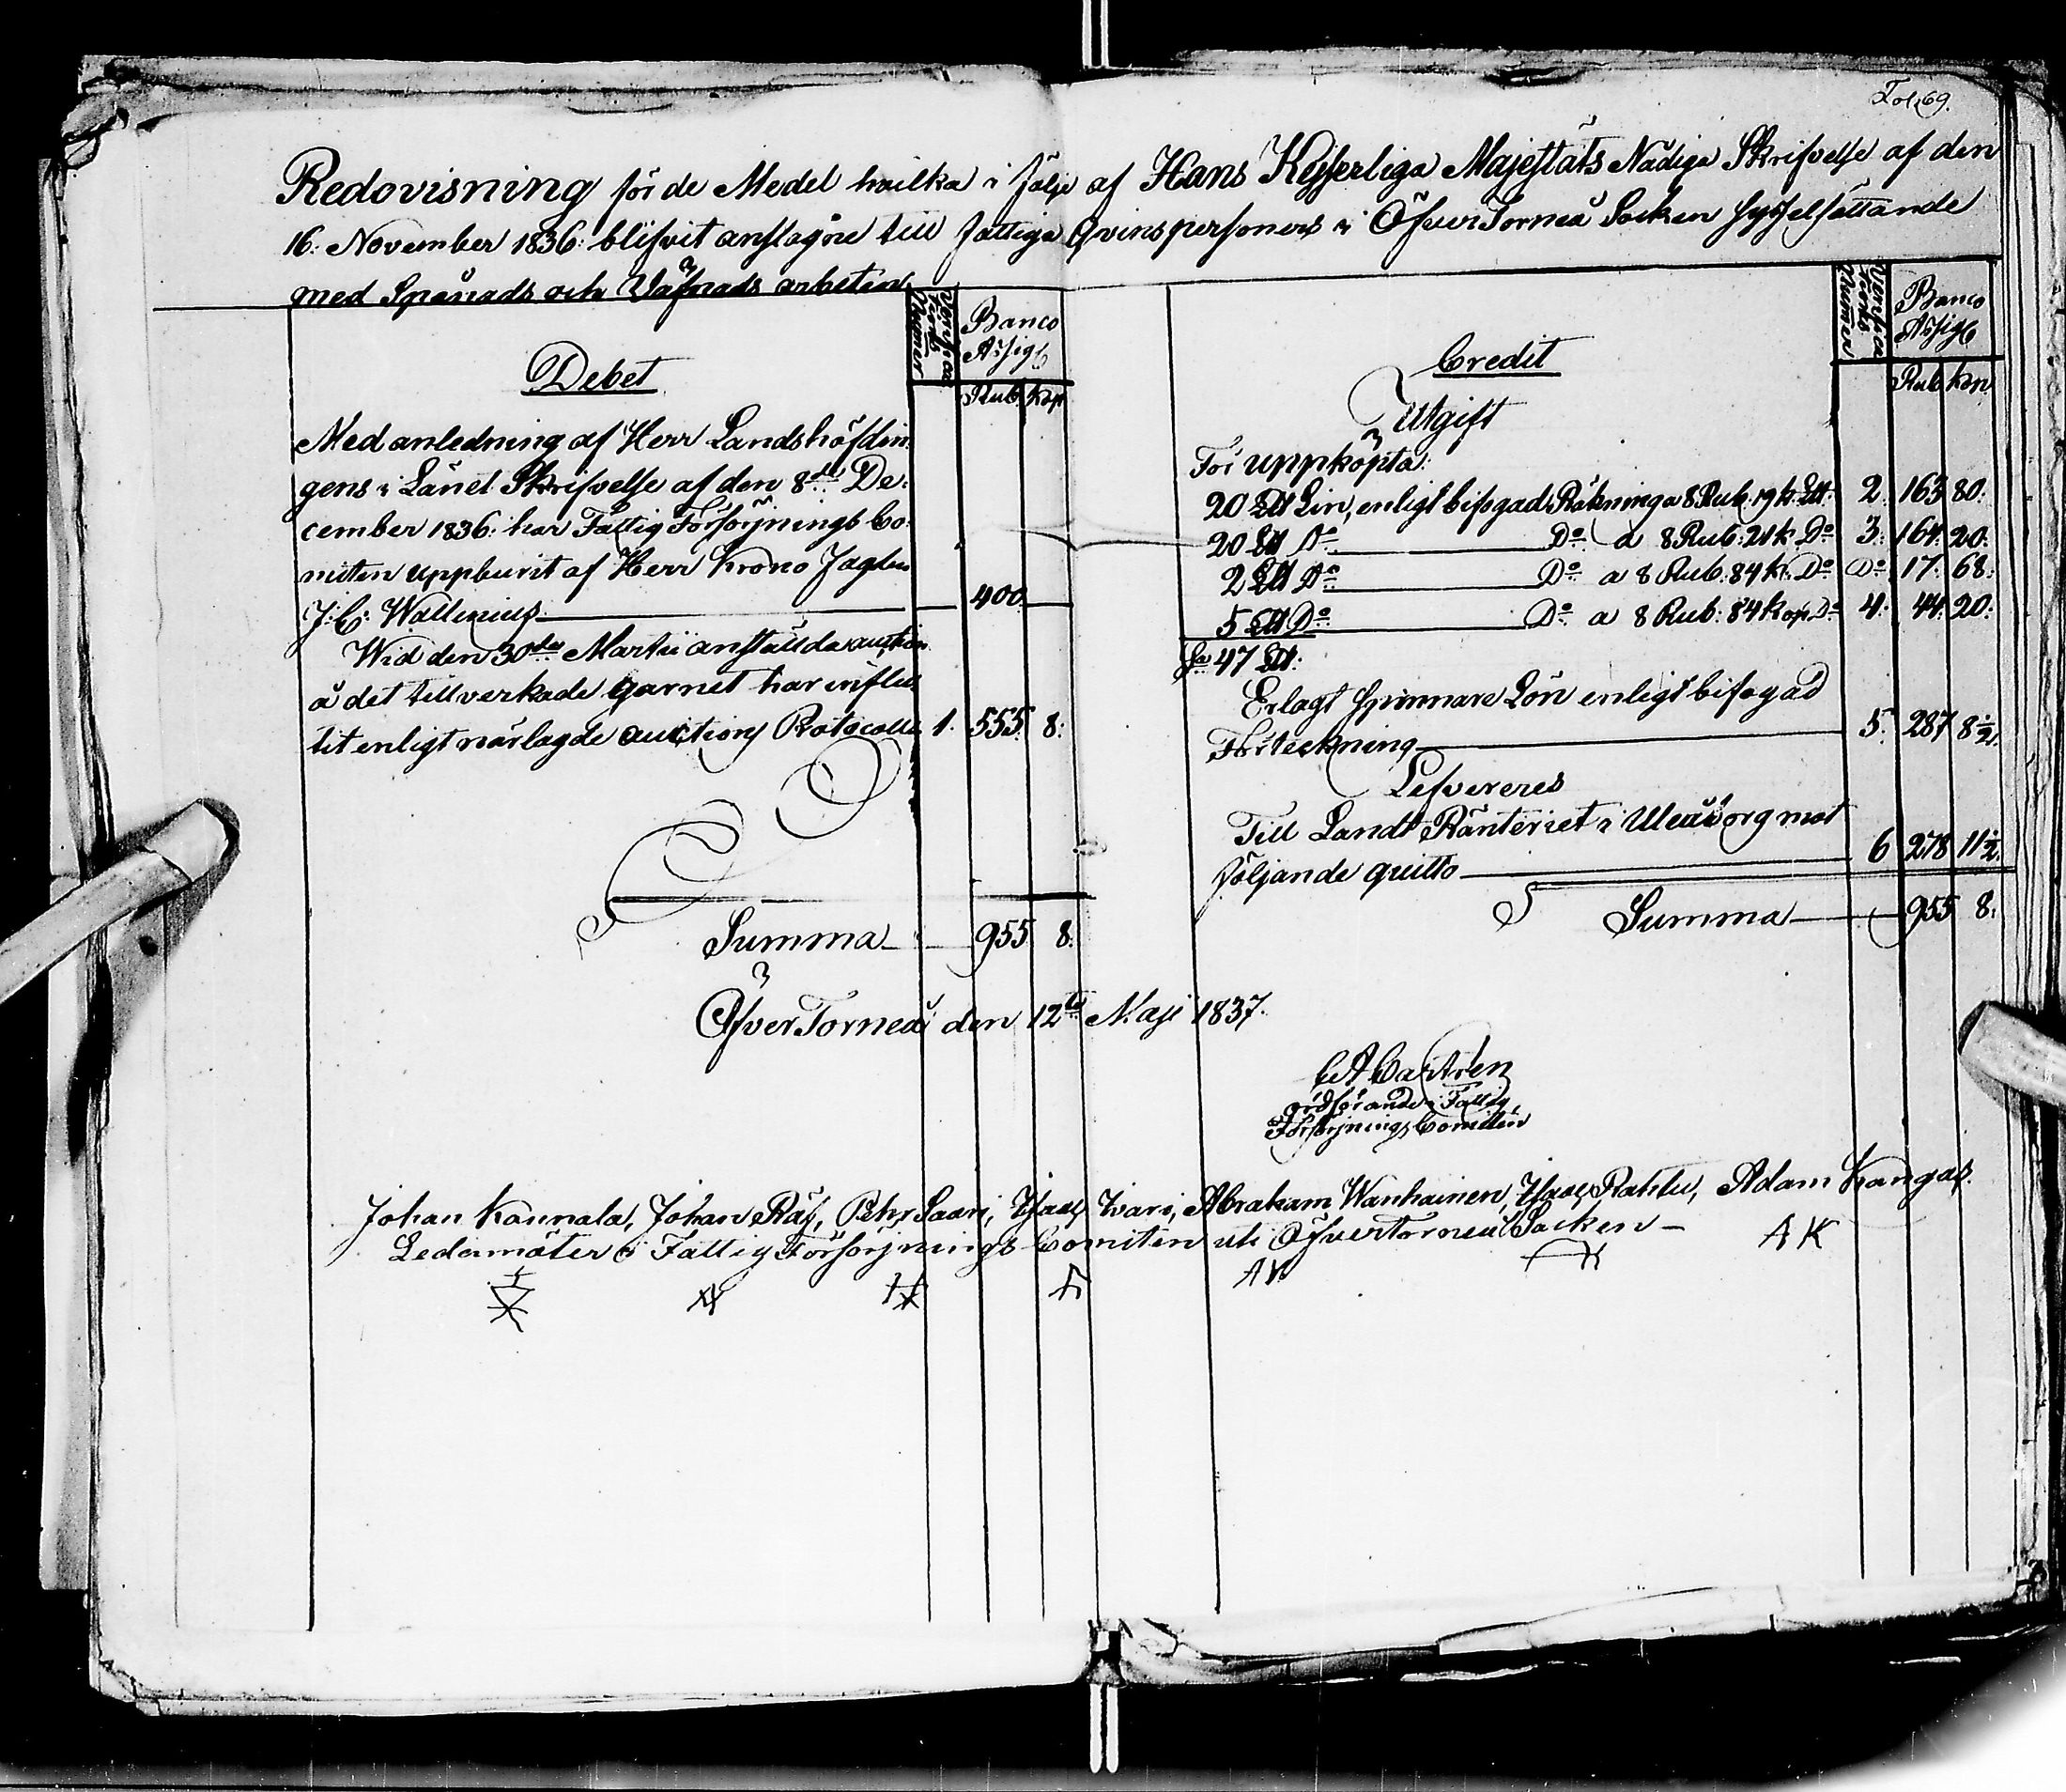 Fol. 69.
Redovisning för de Medel hvilka i följe af Hans Kejserliga Majestäts Nådiga Skrifvelse af den
16: November 1836: blifvit anslagne till fattiga Qvinspersoners i ÖfverTorneå Socken sysselsättande
med Spånads och Väfnads arbeten.
Verifica
tions
Numer
Banco
Assig:
Rub. kop
Debet
Med anledning af Herr Landshöfdin:
gens i Länet Skrifvelse af den 8de De:
cember 1836: har Fattig Försörjnings Co:
miten uppburit af Herr Krono Fogden
J: C: Wallenius 400.
Wid den 30de Martii anstälda auction
å det tillverkade garnet har influ:
tit enligt närlagde auctions Protocoll 1. 555. 8:
Summa 955 8:
Verifica
tions
Numer
Banco
Assig:
Rub kop
Credit
Utgift
För uppköpta:
20 L℔ Lin, enligt bifogad Räkning a 8 Rub. 19 k L℔: 2. 163 80:
20 L℔ Do Do a 8 Rub: 21 k Do 3: 164: 20:
2 L℔ Do Do a 8 Rub: 84 k: Do Do 17: 68:
5 L℔ Do Do a 8 Rub: 84 kop Do 4: 44: 20:
Sa 47 L℔:
Erlagt spinnare Lön enligt bifogad
Förteckning 5. 287 8½.
Lefvereres
Till Landt Ränteriet i Uleåborg mot
följande quitto 6 278 11½.
Summa 955 8.
ÖfverTorneå den 12te Maji 1837.
C A Castrén
ordförande i Fattig
Försörjnings Comitén
Johan Kannala, Johan Räf, Pehr Saari, Isaac Kari, Abraham Wanhainen, Isaac Rahtu, Adam Kangas.
Ledamöter i Fattig Försörjnings Comiten uti ÖfverTorneå Socken
A K